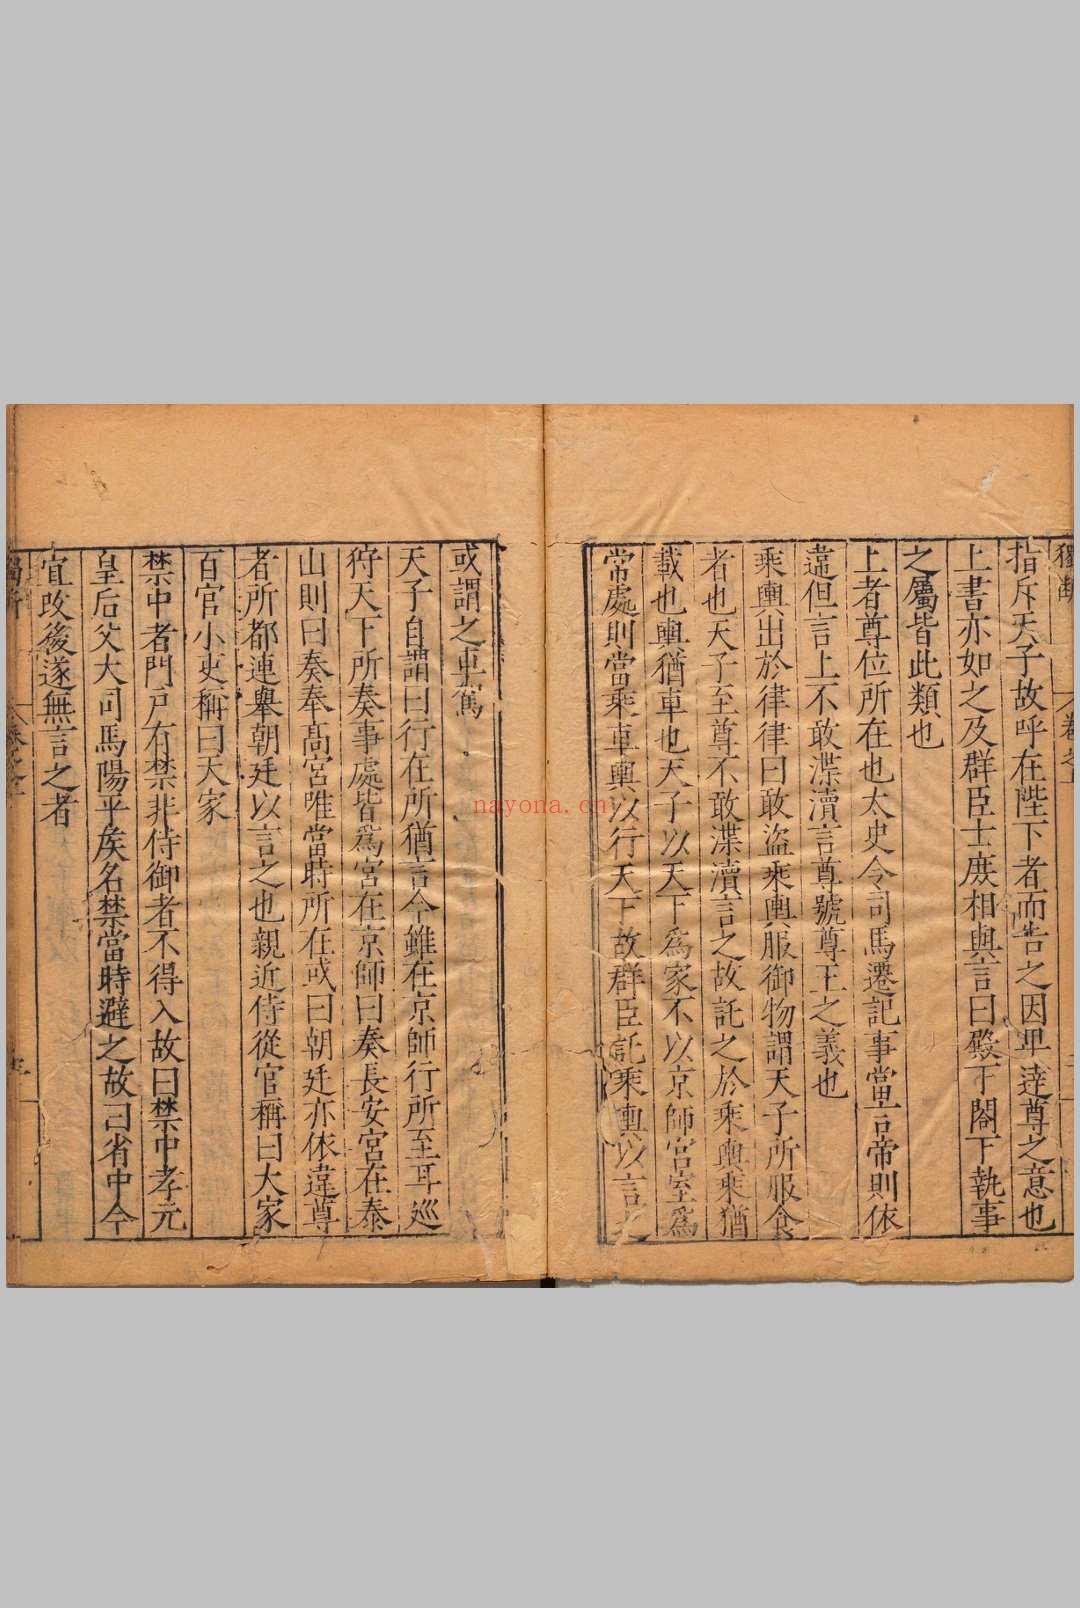 獨斷
卷之上
指斥天子故呼在陛下者而告之因卑達尊之意也
上書亦如之及群臣士庶相與言曰殿下閤下執事
之屬皆此類也
上者尊位所在也太史令司馬遷記事當言帝則依
違但言上不敢渫瀆言尊號尊王之義也
乘輿出於律律曰敢盜乘輿服御物謂天子所服食
者也天子至尊不敢渫瀆言之故託之於乘輿乘猶
載也輿猶車也天子以天下爲家不以京師宮室爲
常處則當乘車輿以行天下故群臣託乘輿以言之
或謂之車駕
天子自謂曰行在所猶言今雖在京師行所至耳巡
狩天下所奏事處皆爲宮在京師曰奏長安宮在泰
山則曰奏奉高宮唯當時所在或曰朝廷亦依違尊
者所都連舉朝廷以言之也親近侍從官稱曰大家
百官小吏稱曰天家
禁中者門戶有禁非侍御者不得入故曰禁中孝元
皇后父大司馬陽平矦名禁當時避之故曰省中今
宜改後遂無言之者
獨斷
卷之上
nayona.cn